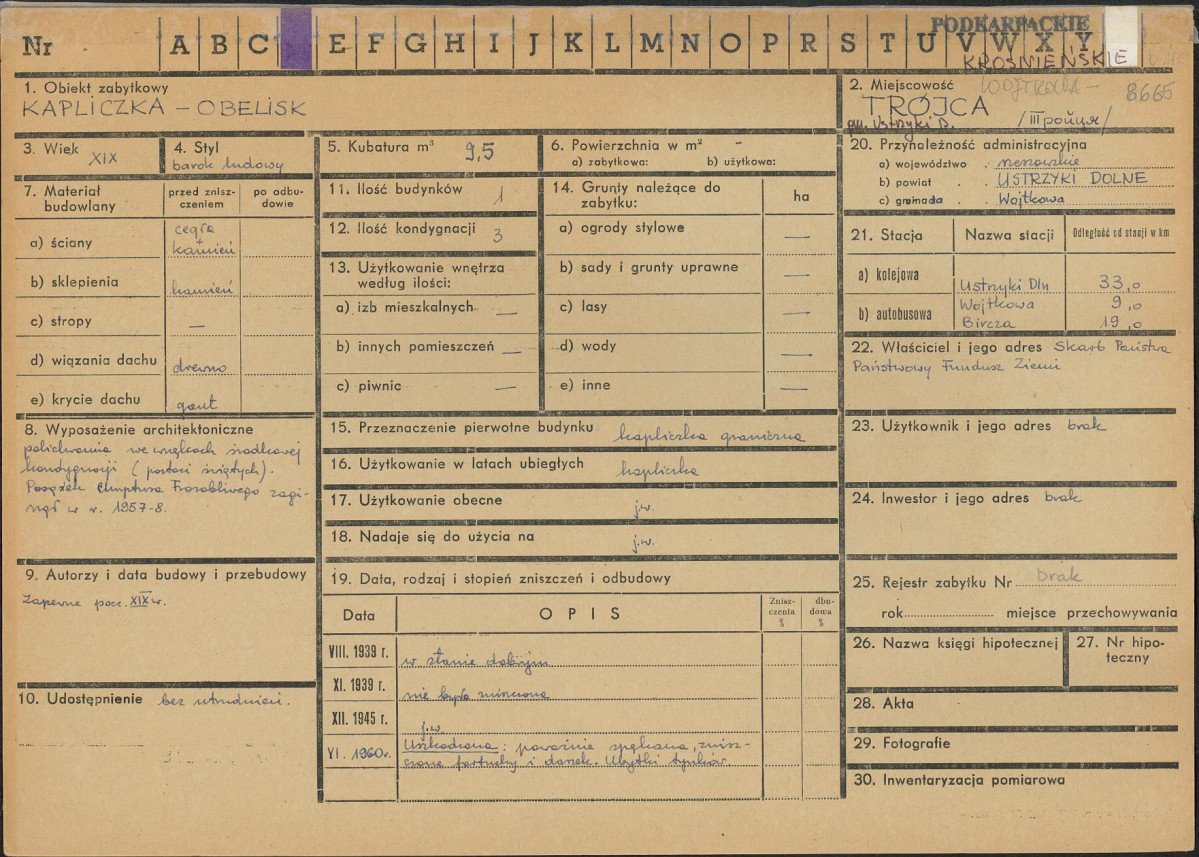 Nr A B C E F G H I J K L M N O P R S T U V W X Y
PODKARPACKIE
KROŚNIEŃSKIE
1. Obiekt zabytkowy
KAPLICZKA – OBELISK
2. Miejscowość WOJTKOWA – 8665
TRÓJCA
gm. Ustrzyki D. /III ройця/
3. Wiek XIX
4. Styl
barok ludowy
5. Kubatura m³ 9,5
6. Powierzchnia w m² –
a) zabytkowa: b) użytkowa:
7. Materiał budowlany
przed zniszczeniem
po odbudowie
a) ściany cegła + kamień
b) sklepienia kamień
c) stropy —
d) wiązania dachu drewno
e) krycie dachu gont
8. Wyposażenie architektoniczne
polichromia we wnękach środkowej
kondygnacji (postaci świętych).
Posążek Chrystusa Frasobliwego zagi-
nął w r. 1957-8.
9. Autorzy i data budowy i przebudowy
Zapewne pocz. XIX w.
10. Udostępnienie bez utrudnień.
11. Ilość budynków 1
12. Ilość kondygnacji 3
13. Użytkowanie wnętrza
według ilości:
a) izb mieszkalnych —
b) innych pomieszczeń —
c) piwnic —
14. Grunty należące do
zabytku: ha
a) ogrody stylowe —
b) sady i grunty uprawne —
c) lasy —
d) wody —
e) inne —
15. Przeznaczenie pierwotne budynku kapliczka graniczna
16. Użytkowanie w latach ubiegłych kapliczka
17. Użytkowanie obecne j.w.
18. Nadaje się do użycia na j.w.
19. Data, rodzaj i stopień zniszczeń i odbudowy
Data OPIS Znisz-czenia % dbu-dowa %
VIII. 1939 r. w stanie dobrym
XI. 1939 r. nie była zniszczona
XII. 1945 r. j.w
VI. 1960 r. Uszkodzona: poważnie spękana, znisz-
czone fartuchy i daszek. Ubytki tynków.
20. Przynależność administracyjna
a) województwo . rzeszowskie
b) powiat . . USTRZYKI DOLNE
c) gromada . . Wojtkowa
21. Stacja Nazwa stacji Odległość od stacji w km
a) kolejowa Ustrzyki Dln 33,0
b) autobusowa Wojtkowa 9,0
Bircza 19,0
22. Właściciel i jego adres Skarb Państwa
Państwowy Fundusz Ziemi
23. Użytkownik i jego adres brak
24. Inwestor i jego adres brak
25. Rejestr zabytku Nr brak
rok miejsce przechowywania
26. Nazwa księgi hipotecznej
27. Nr hipo-
teczny
28. Akta
29. Fotografie
30. Inwentaryzacja pomiarowa